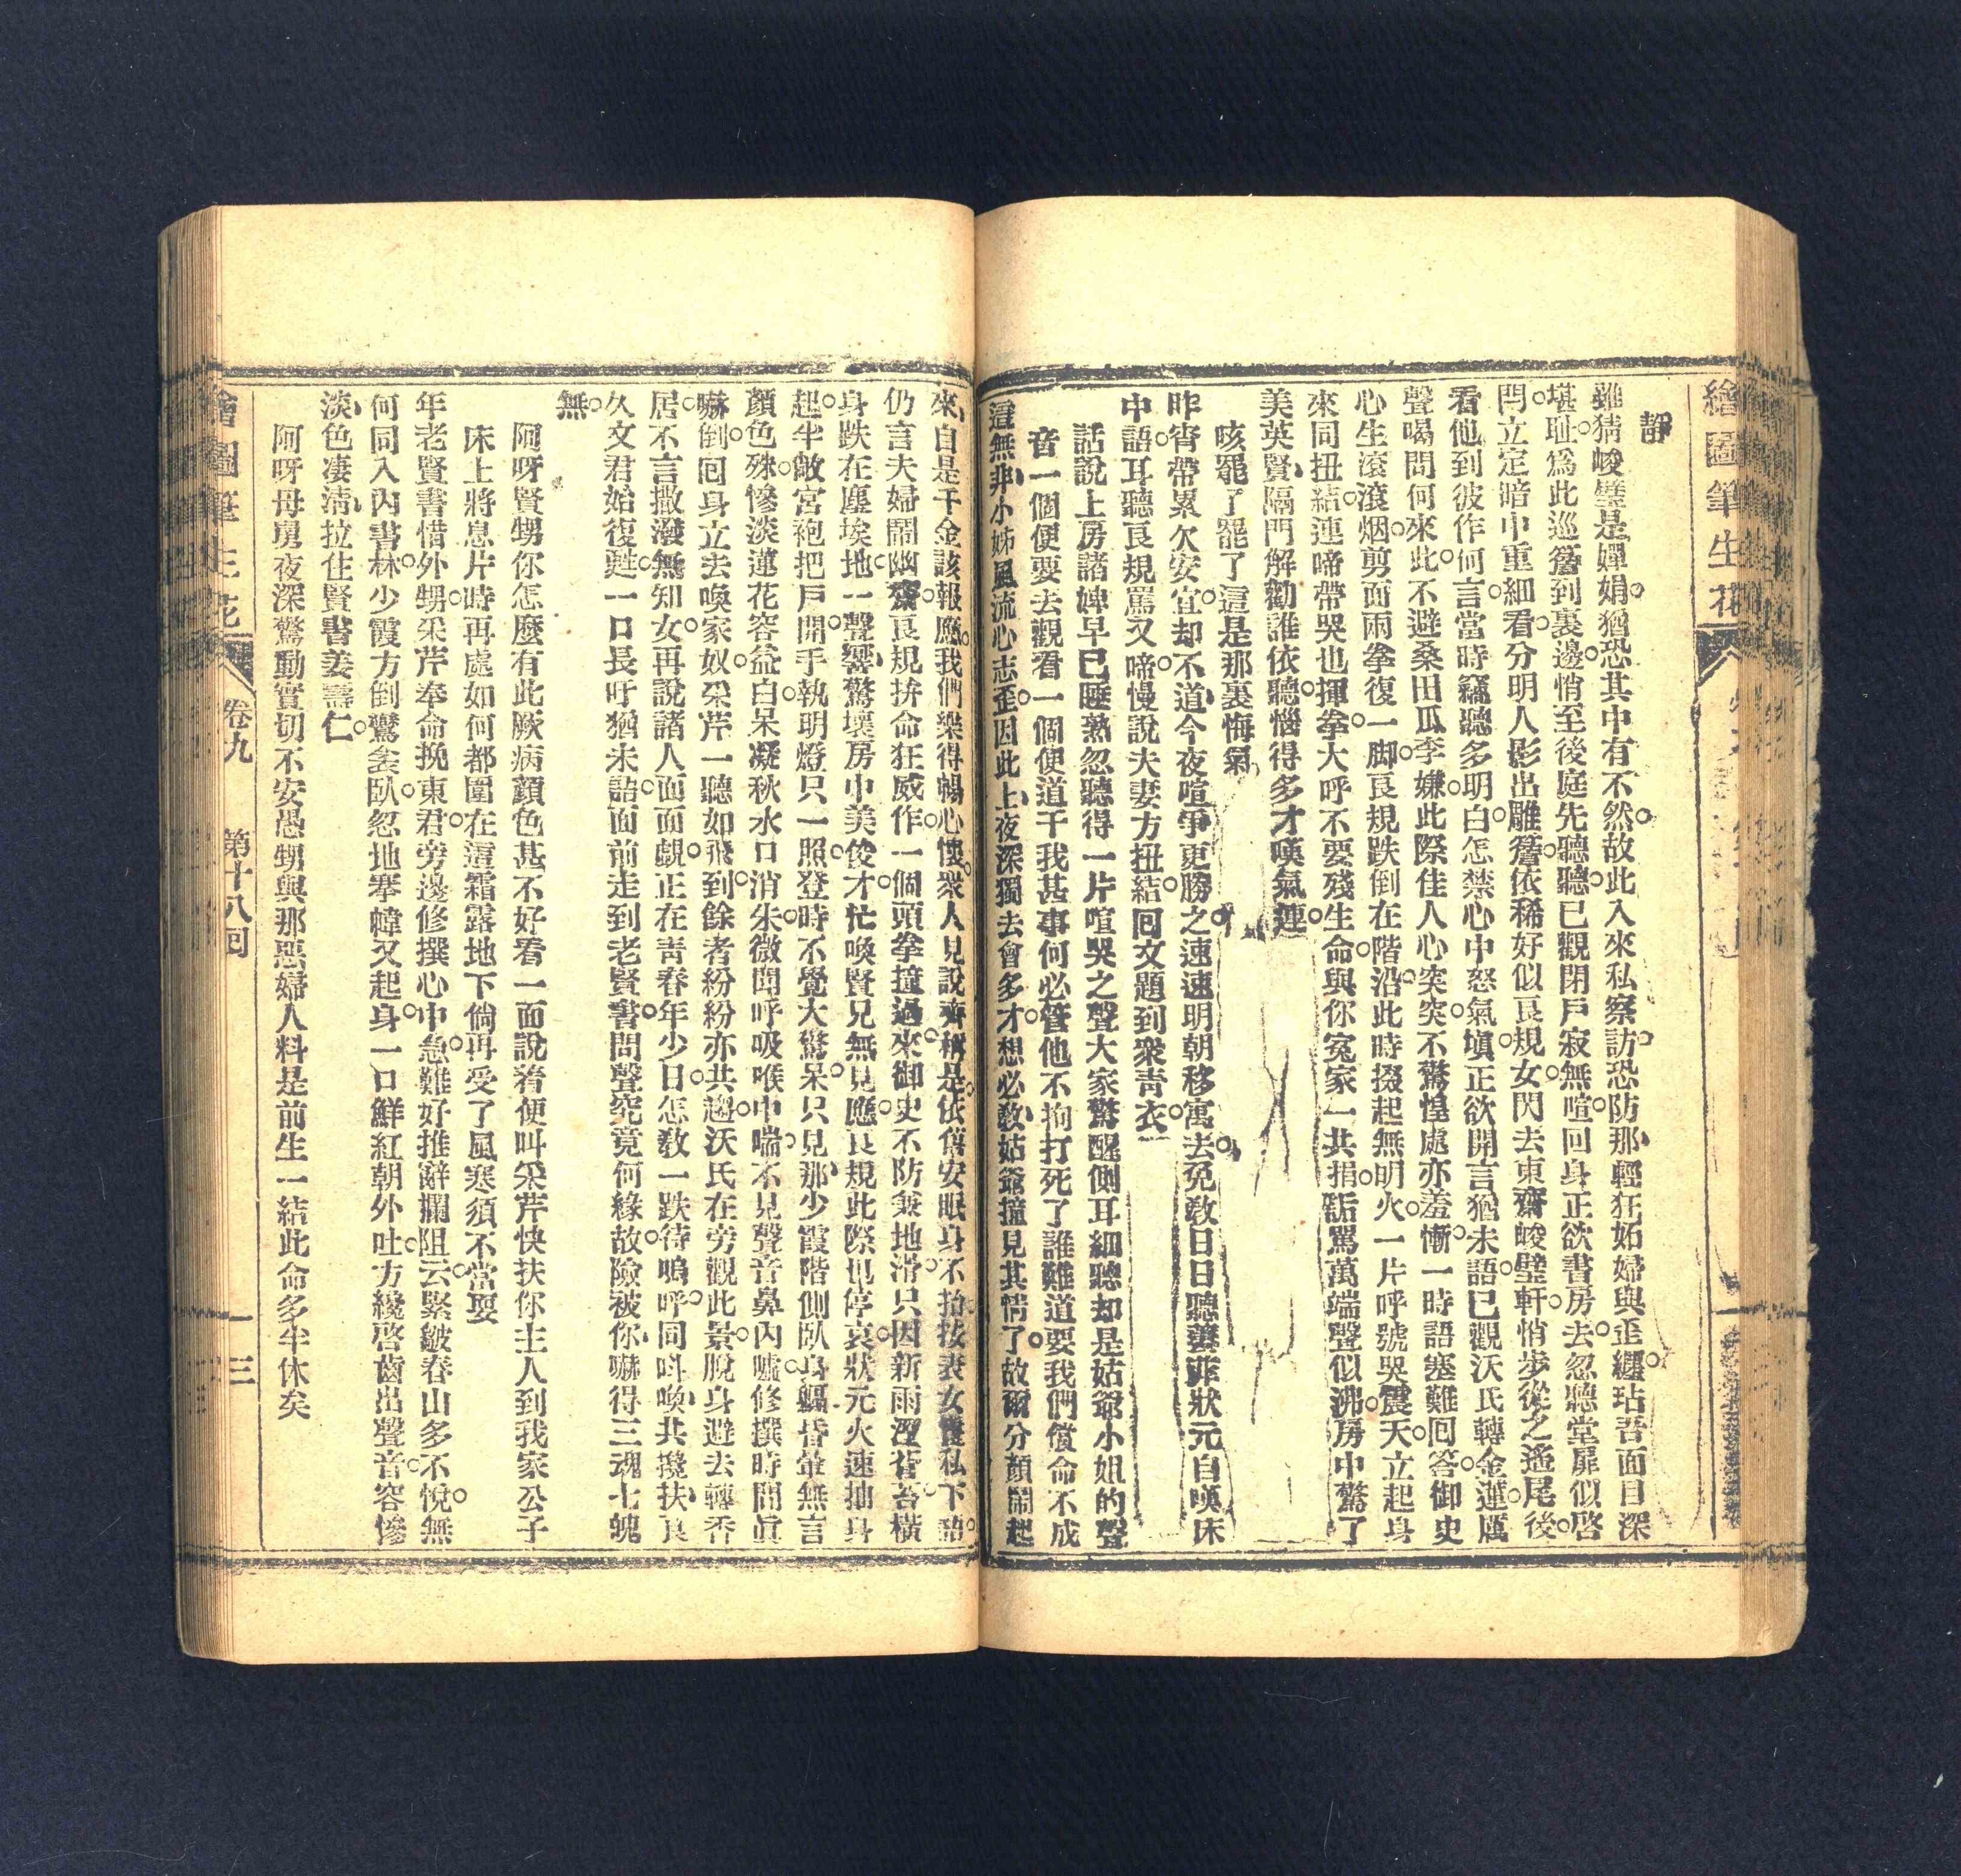 繪圖筆生花
靜
雖猜峻璧是嬋娟。猶恐其中有不然。故此入來私察訪。恐防那、輕狂妬婦與歪纏。玷吾面目深
堪耻。爲此巡簷到裏邊。悄至後庭先聽聽。已觀閉戶寂無喧。回身正欲書房去。忽聽堂扉似啓
閂。立定暗中重細看。分明人影出雕簷。依稀好似良規女。閃去東齋峻璧軒。悄步從之遙尾後。
看他到彼作何言。當時竊聽多明白。怎禁心中怒氣塡。正欲開言猶未語。已觀沃氏轉金蓮。厲
聲喝問何來此。不避桑田瓜李嫌。此際佳人心突突。不驚惶處亦羞慚。一時語塞難回答。御史
心生滾滾烟。剪面兩拳復一脚。良規跌倒在階沿。此時掇起無明火。一片呼號哭震天。立起身
來同扭結。連啼帶哭也揮拳。大呼不要殘生命。與你寃家一共捐。詬罵萬端聲似沸。房中驚了
美英賢。隔門解勸誰依聽。惱得多才嘆氣連。
咳罷了罷了這是那裏悔氣
昨宵帶累欠安宜。却不道、今夜喧爭更勝之。速速明朝移寓去。免敎日日聽 非狀元自嘆床
中語。耳聽良規罵又啼。慢說夫妻方扭結。回文題到衆靑衣。
話說上房諸婢早已睡熟忽聽得一片喧哭之聲大家驚醒側耳細聽却是姑爺小姐的聲
音一個便要去觀看一個便道干我甚事何必管他不拘打死了誰難道要我們償命不成
這無非、小姊風流心志歪。因此上、夜深獨去會多才。想必敎、姑爺撞見其情了。故爾分顏鬧起
來、自是千金該報應。我們樂得暢心懷。衆人見說齊稱是。依舊安眠身不抬。按表女 私下語。
仍言夫婦鬧幽齋。良規拚命狂威作。一個頭拳撞過來。御史不防兼地滑。只因新雨溼苔。橫
身跌在塵埃地。一聲響、驚壞房中美俊才。忙喚賢兄無見應。良規此際也停哀。狀元火速抽身
起。半敞宮袍把戶開。手執明燈只一照。登時不覺大驚呆。只見那、少霞階側臥身軀。昏暈無言
顏色殊。慘淡蓮花容益白。呆凝秋水口消朱。微聞呼吸喉中喘。不見聲音鼻內噓。修撰時間眞
嚇倒。回身立去喚家奴。采芹一聽如飛到。餘者紛紛亦共趨。沃氏在旁觀此景。脫身避去轉香
居。不言撒潑無知女。再說諸人面面覷。正在靑春年少日。怎敎一跌待嗚呼。同呌喚、共攙扶、良
久文君始復甦。一口長吁猶未語。面前走到老賢書。問聲究竟何緣故。險被你、嚇得三魂七魄
無。
阿呀賢甥你怎麼有此厥病顏色甚不好看一面說着便叫采芹快扶你主人到我家公子
床上將息片時再處如何都圍在這霜露地下倘再受了風寒須不當耍
年老賢書惜外甥。采芹奉命挽東君。旁邊修撰心中急。難好推辭攔阻云。緊皺春山多不悅。無
何同入內書林。少霞方倒鴛衾臥。忽地搴幃又起身。一口鮮紅朝外吐。方纔啓齒出聲音。容慘
淡、色凄淸、拉住賢書姜壽仁。
阿呀母舅夜深驚動實切不安恐甥與那惡婦人料是前生一結此命多半休矣
繪圖筆生花 卷九 第十八回 三